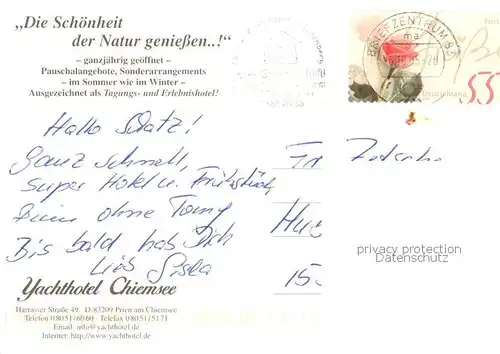 „Die Schönheit
der Natur genießen..!“
– ganzjährig geöffnet –
Pauschalangebote, Sonderarrangements
– im Sommer wie im Winter –
Ausgezeichnet als Tagungs- und Erlebnishotel!
BRIEFZENTRUM 83
ma
Deutschland
55
Hallo Schatz!
Ganz schnell,
super Hotel u. Frühstück,
ohne Tomy
Bis bald hab Dich
lieb
15.
privacy protection
Datenschutz
Yachthotel Chiemsee
Harrasser Straße 49 D-83209 Prien am Chiemsee
Telefon 08051/6960 Telefax 08051/5171
Email: info@yachthotel.de
Internet: http://www.yachthotel.de